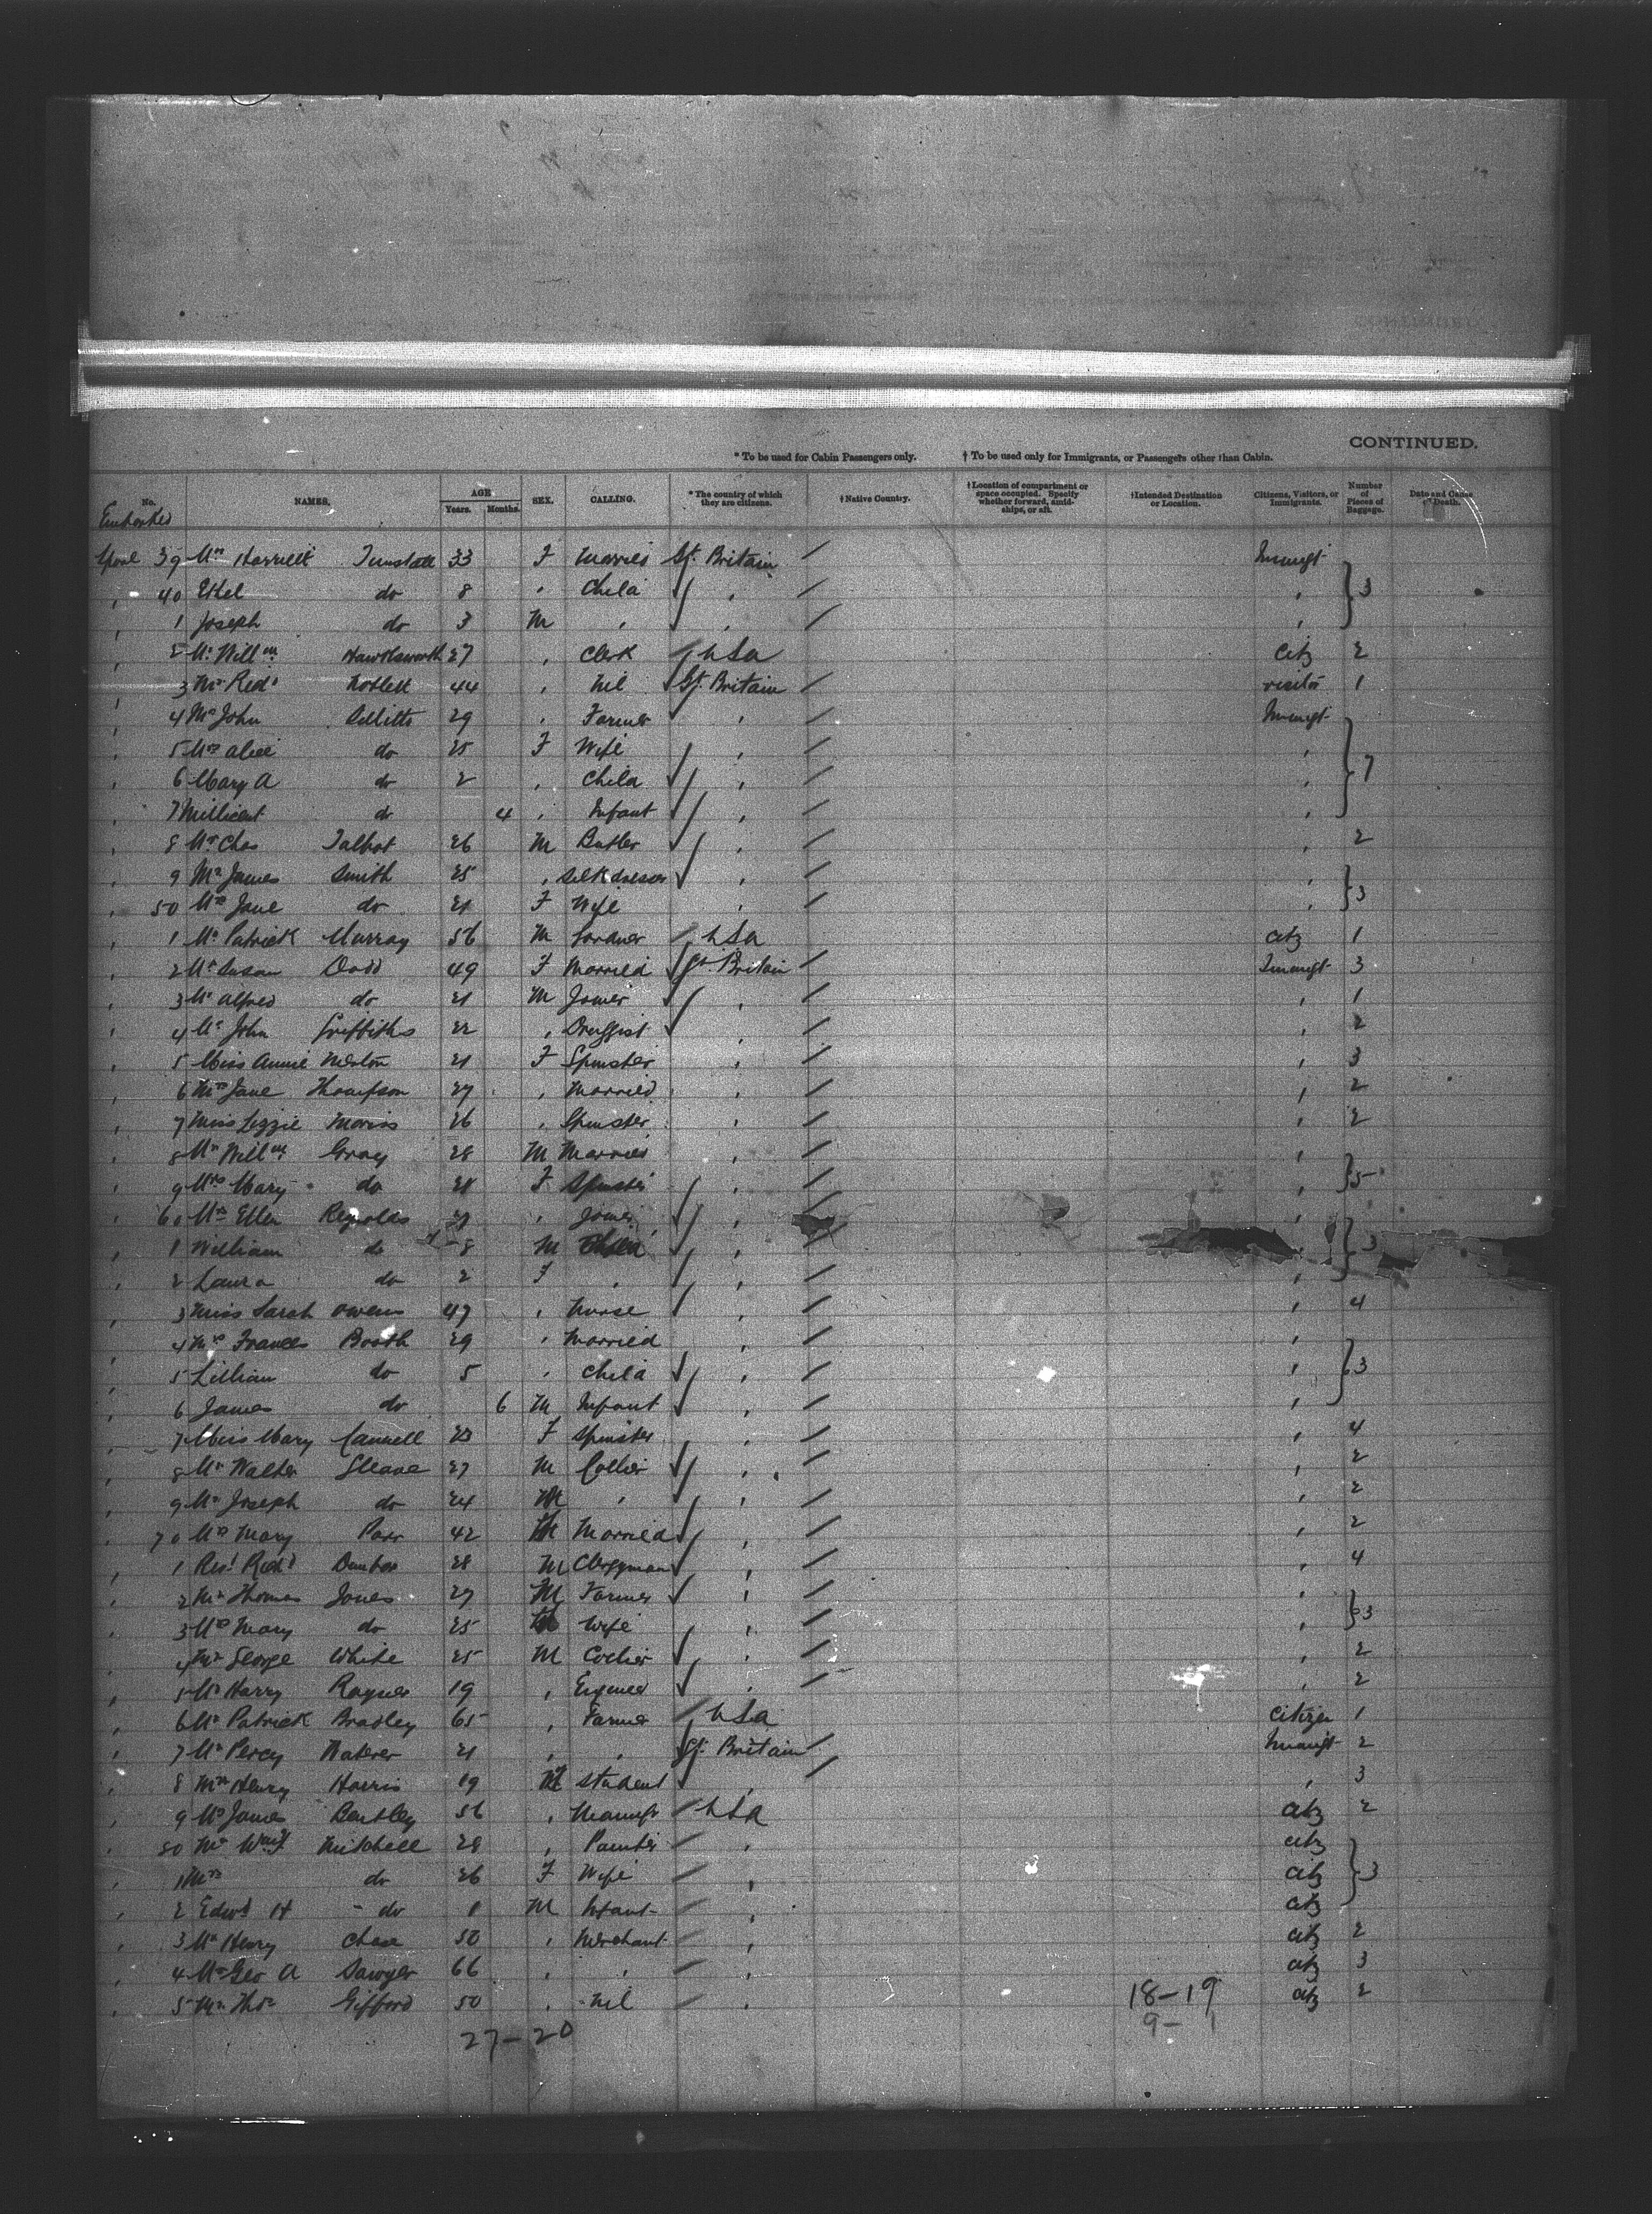 CONTINUED.
* To be used for Cabin Passengers only. † To be used only for Immigrants, or Passengers other than Cabin.
No. NAMES. AGE Years. Months. SEX. CALLING. * The country of which they are citizens. † Native Country. † Location of compartment or space occupied. Specify whether forward, amidships, or aft. † Intended Destination or Location. Citizens, Visitors, or Immigrants. Number of Pieces of Baggage. Date and Cause of Death.
Embarked
Lpool 39 Mrs Harriett Tunstall 33 F Married Gt. Britain / Immigt
" 40 Ethel do 8 " Child " / " } 3
" 1 Joseph do 3 M " " / "
" 2 Mr Willm Hawksworth 27 " Clerk USA Citz 2
" 3 Mr Richd 44 " Nil Gt. Britain / visitor 1
" 4 Mr John 29 " Farmer " / Immigt
" 5 Mrs Alice do 25 F Wife " / " } 7
" 6 Mary A do 2 " Child " / "
" 7 Millicent do 4 " Infant " / "
" 8 Mr Chas Talbot 26 M Butler " / " 2
" 9 Mr James Smith 25 " Silk " / " } 3
" 50 Mrs Jane do 21 F Wife " / "
" 1 Mr Patrick Murray 56 M Gardner USA Citz 1
" 2 Mrs Susan Dodd 49 F Married Gt. Britain / Immigt 3
" 3 Mr Alfred do 21 M Joiner " / " 1
" 4 Mr John Griffiths 22 " Druggist " / " 2
" 5 Miss Annie 21 F Spinster " / " 3
" 6 Mrs Jane Thompson 27 " Married " / " 2
" 7 Miss Lizzie Morris 26 " Spinster " / " 2
" 8 Mr Willm Gray 28 M Married " / " } 5
" 9 Mrs Mary do 21 F Spinster " / "
" 60 Mrs Ellen Reynolds " " / "
" 1 William do 8 M Child " / " } 3
" 2 Laura do 2 F " " / "
" 3 Miss Sarah Owens 47 " Nurse " / " 4
" 4 Mrs Frances Booth 29 " Married " / "
" 5 Lillian do 5 " Child " / " } 3
" 6 James do 6 M Infant " / "
" 7 Miss Mary Cannell 23 F Spinster " / " 4
" 8 Mr Walter Gleave 27 M Collier " / " 2
" 9 Mr Joseph do 24 M " " / " 2
" 70 Mrs Mary Parr 42 Married " / " 2
" 1 Revd Richd Dunbar 28 M Clergyman " / " 4
" 2 Mr Thomas Jones 27 M Farmer " / " } 3
" 3 Mrs Mary do 25 Wife " / "
" 4 Mr George White 25 M Collier " / " 2
" 5 Mr Harry Rayner 19 " Engineer " / " 2
" 6 Mr Patrick Bradley 65 " Farmer USA Citizen 1
" 7 Mr Percy Waterer 21 " " Gt. Britain / Immigt 2
" 8 Mr Henry Harris 19 M Student " / " 3
" 9 Mr James Bentley 56 " Manufr USA Citz 2
" 80 Mr Mitchell 28 " Painter " Citz
1 Mrs do 26 F Wife " Citz } 3
" 2 Edwd H do 1 M Infant " Citz
" 3 Mr Henry Chase 50 " Merchant " Citz 2
" 4 Mr Geo A Sawyer 66 " " " Citz 3
" 5 Mr Thos Gifford 50 " Nil " Citz 2
18-19
9-1
27-20